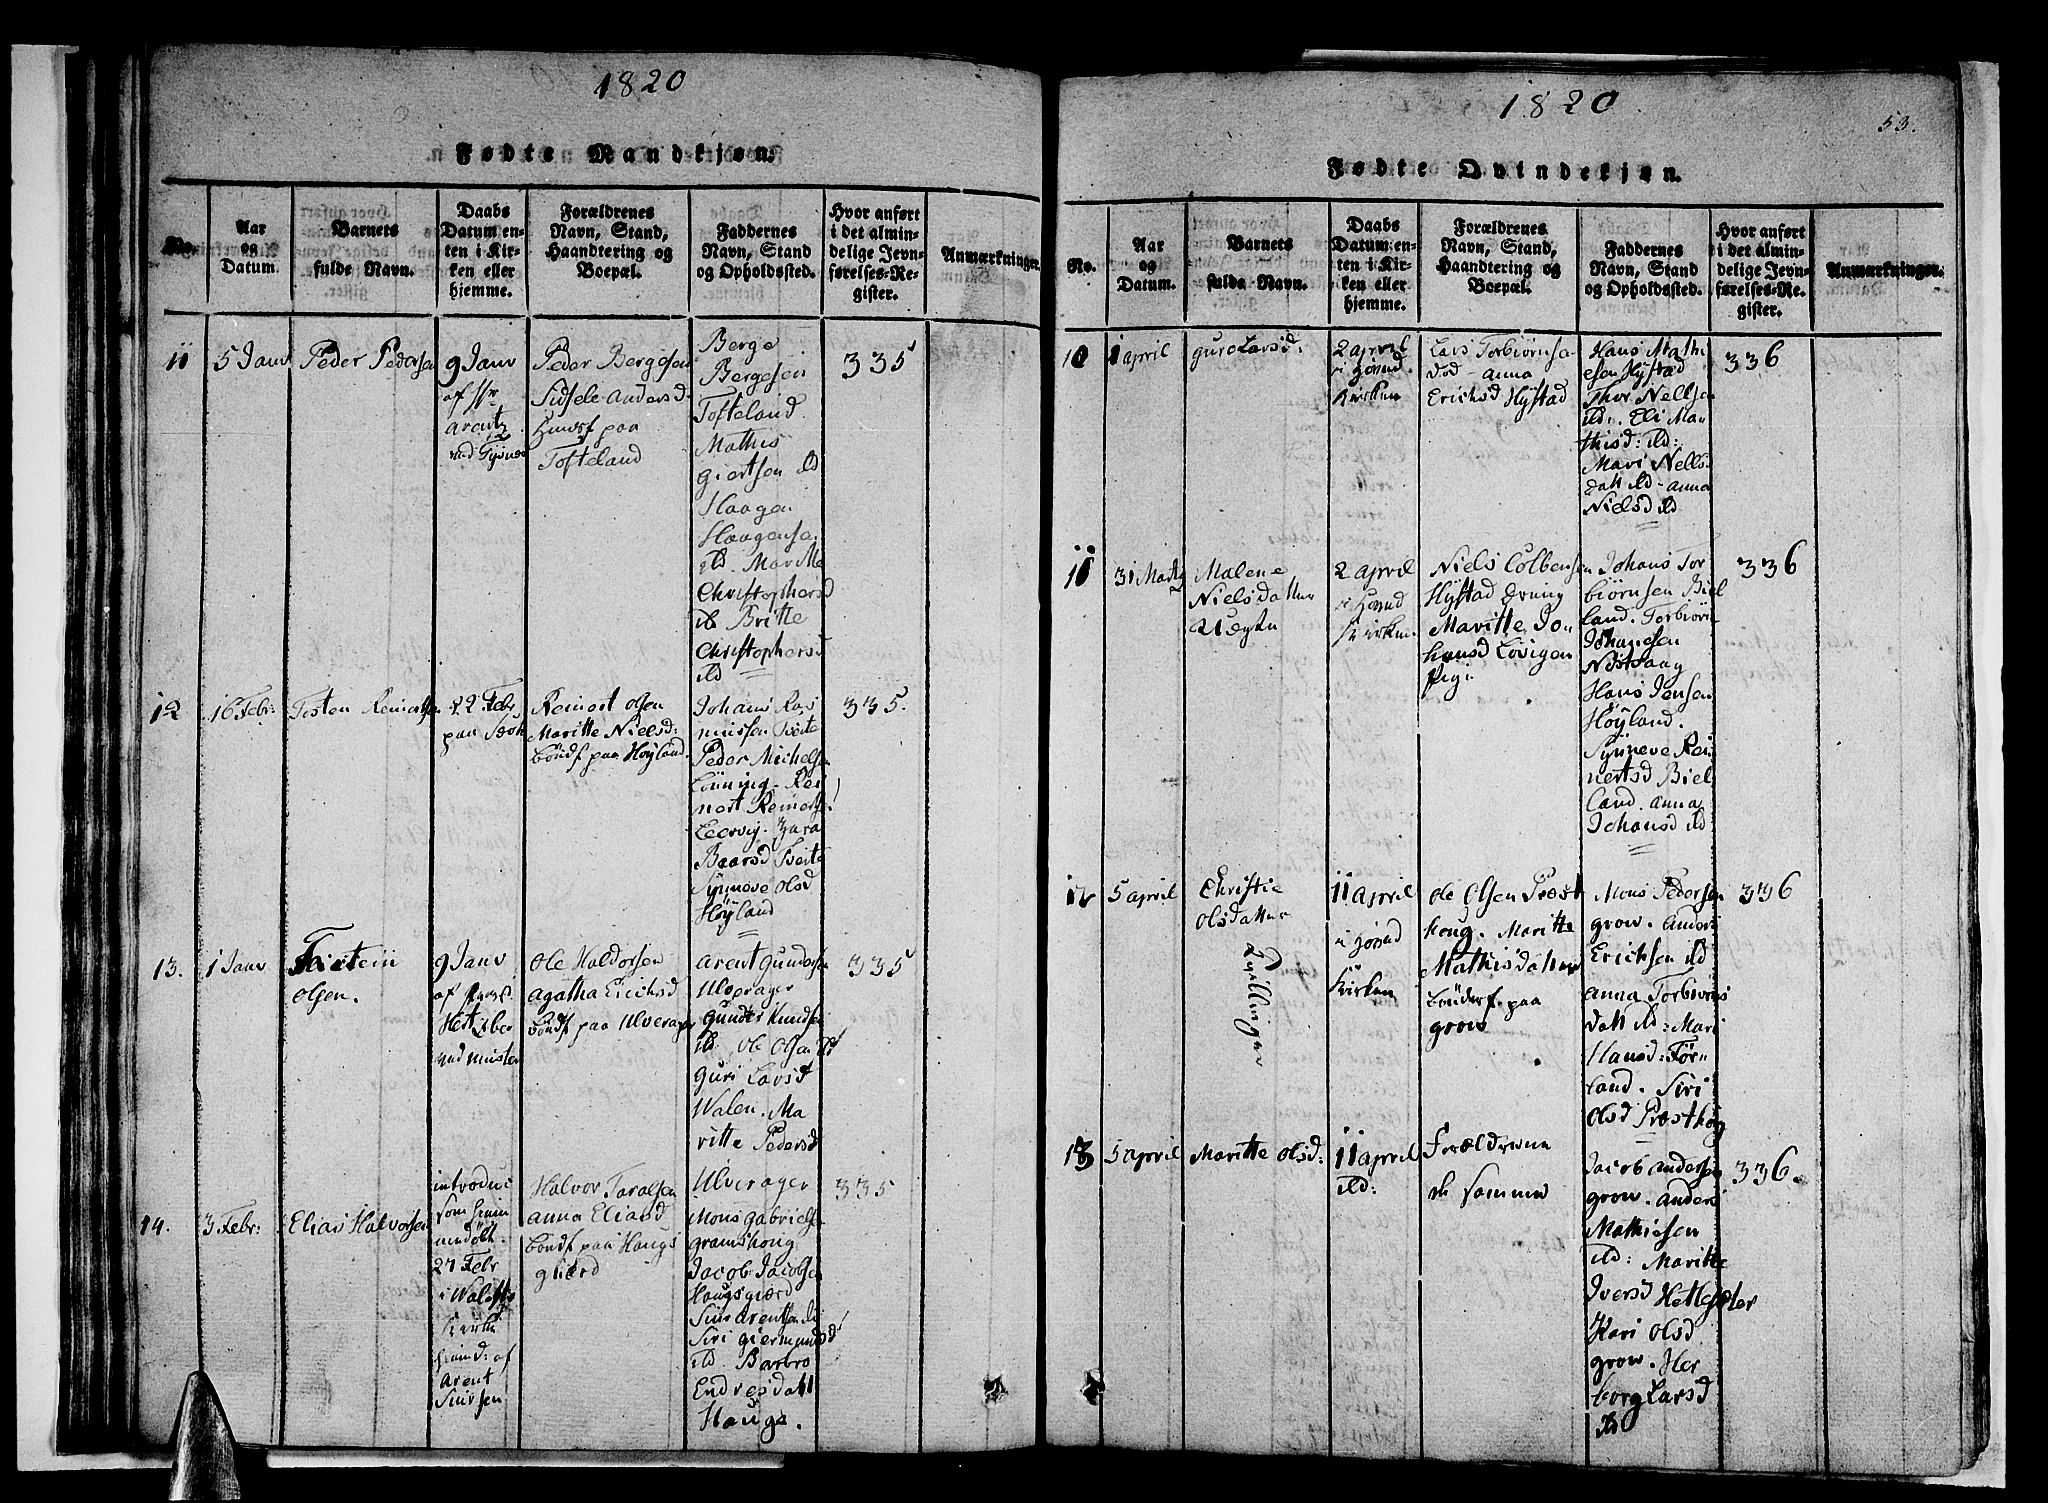 1820
Fødte Mandkjøn.
No.
Aar
og
Datum.
Barnets
fulde Navn.
Daabs
Datum en-
ten i Kir-
ken eller
hjemme.
Forældrenes
Navn, Stand,
Haandtering og
Boepæl.
Faddernes
Navn, Stand
og Opholdssted.
Hvor anført
i det almin-
delige Jevn-
førelses-Re-
gister.
Anmærkninger.
11
5 Janv
Peder Pedersen
9 Janv
af Hr
Arentz
ved Tysnes
Peder Bergesen
Sidsele Andersd
Huusf paa
Tofteland
Berge
Bergesen
Tofteland
Mathis
Giertsen ild
Haagen
Haagensen
ild. Maritte
Christophersd
ild Britte
Christophersd
ild
335
12
16 Febr:
Tosten Reinertsen
22 Febr
paa
Reinert Olsen
Maritte Nielsd:
böndf paa Höyland.
Johans Ras
mussen Tveite
Peder Michelsen
Lönning. Rei
nert Reinertsen
Leervig.
Baarsd Tveite
Synneve Olsd
Höyland
335.
13.
1 Janv
Tostein
Olsen.
9 Janv
af
Hertzber
ved
Ole Haldorsen
Agatha Erichsd
böndf paa Ulverager
Arent Gundersen
Ulverager
Gunder Knudsen
ild. Ole Olsen ild
Guri Larsd
Walen. Ma
ritte Pedersd
Ulverager
335
14.
3 Febr:
Elias Halvorsen
introdu:
som hiem
medöbt:
27 Febr
i
Kirke
hiemd: af
Arent
Siursen
Halvor Taralsen
Anna Eliasd
böndf paa Haugs
giærd
Mons Gabrielsen
Gramshoug
Jacob Jacobsen
Haugsgiærd
Siur Arentsen ild
Siri Giermundsd
ild. Barbro
Endresdatt
Hauge.
335
1820
53.
Fødte Qvindekjøn.
No.
Aar
og
Datum.
Barnets
fulde Navn.
Daabs
Datum en-
ten i Kir-
ken eller
hjemme.
Forældrenes
Navn, Stand,
Haandtering og
Boepæl.
Faddernes
Navn, Stand
og Opholdssted.
Hvor anført
i det almin-
delige Jevn-
førelses-Re-
gister.
Anmærkninger.
10
1 April
Guro Larsd:
2 April
i
Kirken
Lars Torbiörnsen
Anna
Erichsd Hystad
Hans Mathi
esen Hystad
Thor Nellsen
ild. Eli Ma
thisd: ild:
Mari Nells
datt ild - Anna
Nielsd ild
336
11
31 Marty
Malene
Nielsdatter
Uægte
2 April
i
Kirken
Niels Colbensen
Hystad
Maritte Jo
hansd Lövigen
Pige
Johans Tor
biörnsen Biel
land. Torbiörn
Johansen
Hans Jensen
Höyland.
Synneve Rei
nertsd Biel
land. Anna
Johansd ild
336
12
5 April
Christie
Olsdatter
Tvillinger
11 April
i
Kirken
Ole Olsen Præst
houg. Maritte
Mathisdatter
böndf. paa
Grow
Mons Pedersen
Grow. Anders
Erichsen ild
Anna Torbiörns
datt ild: Mari
Hansd: Tör
land. Siri
Olsd Præsthoug
336
13
5 April
Maritte Olsd:
11 April
ild:
Forældrene
de samme
Jacob Andersen
Grow. Anders
Mathiesen
ild: Maritte
Iversd Hetlesæter
Kari Olsd
Grow. Her
borg Larsd
ild
336.